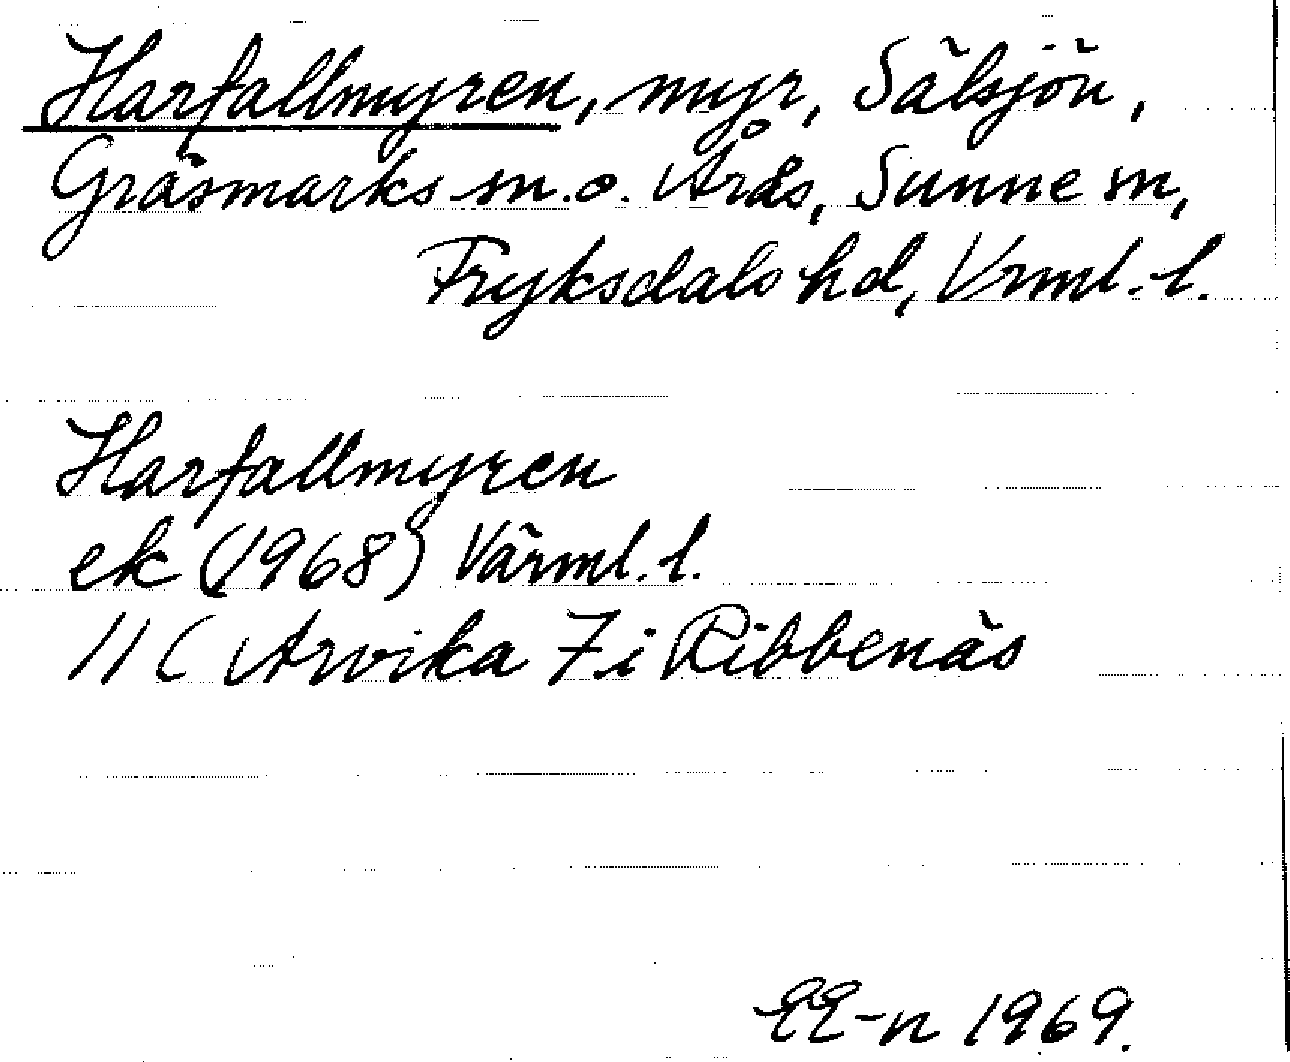 Harfallmyren, myr, Sälsjön,
Gräsmarks sn. o. Årås, Sunne sn,
Fryksdals hd, Vrml. l.
Harfallmyren
ek (1968) Värml. l.
11 C Arvika 7 i Ribbenäs
EE-n 1969.